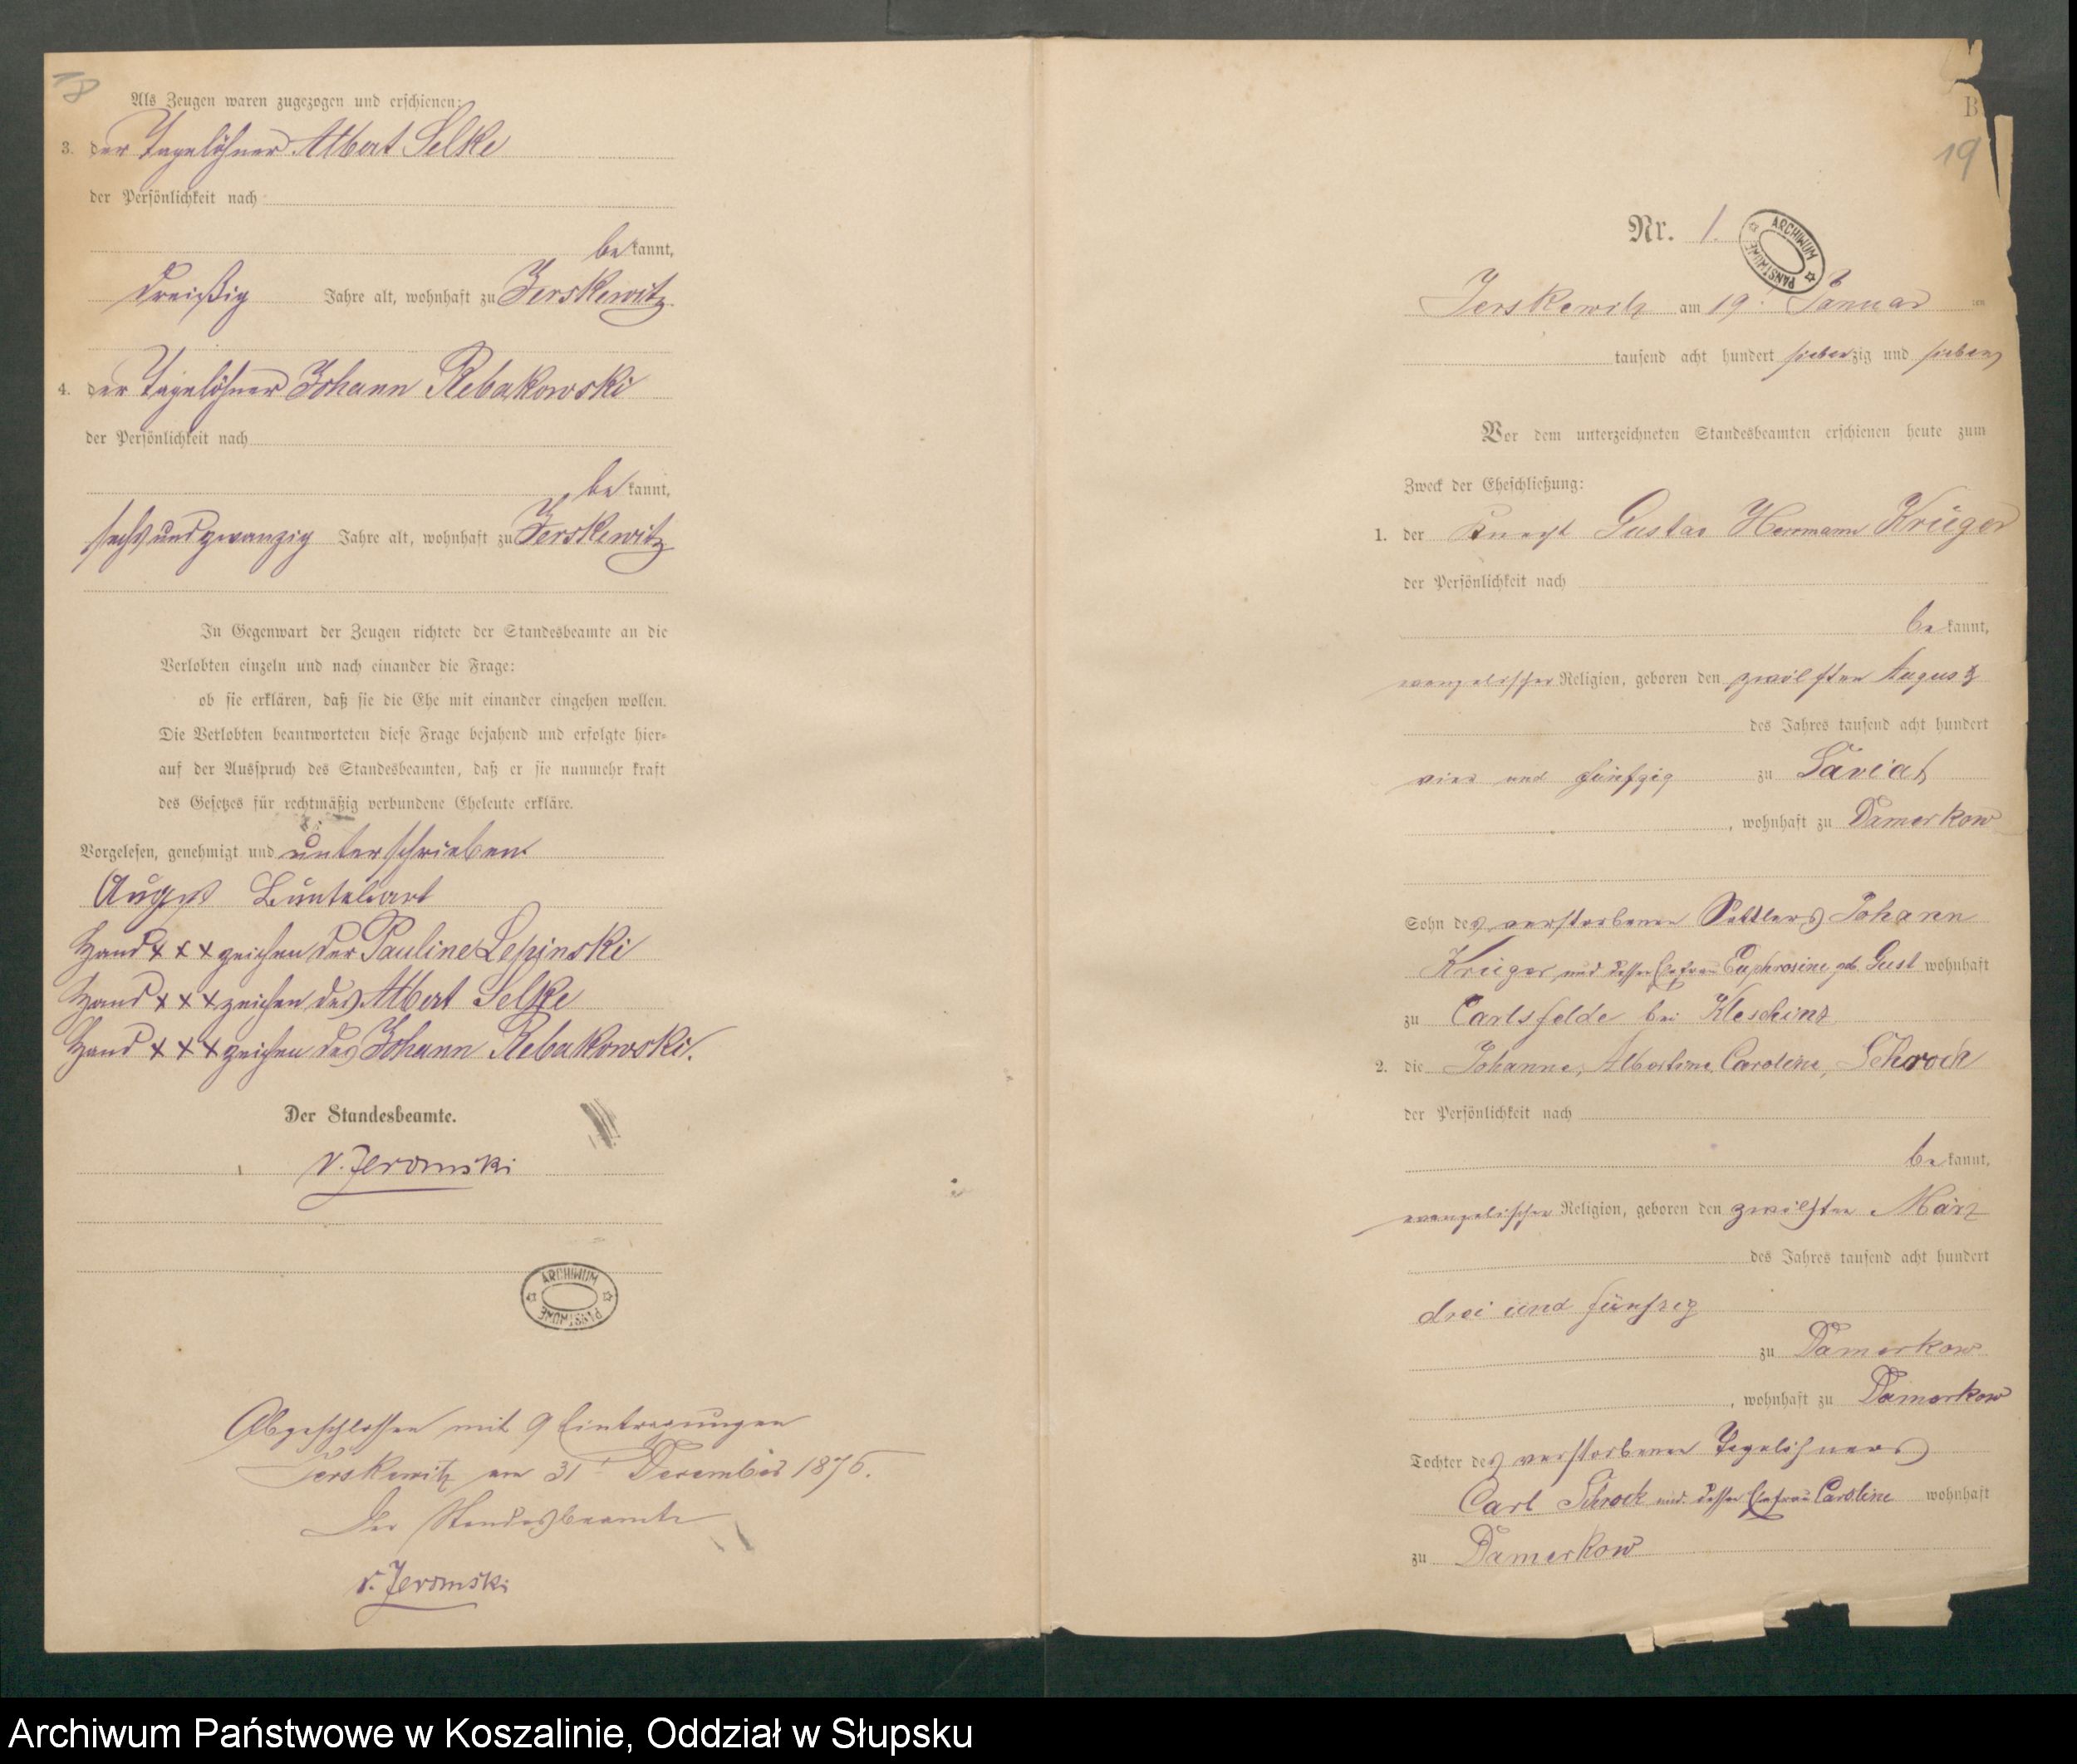 18
Als Zeugen waren zugezogen und erschienen:
3. der Tagelöhner Albert Selke
der Persönlichkeit nach
be kannt,
dreißig Jahre alt, wohnhaft zu Jerskewitz
4. der Tagelöhner Johann Rebakowski
der Persönlichkeit nach
be kannt,
sechsundzwanzig Jahre alt, wohnhaft zu Jerskewitz
In Gegenwart der Zeugen richtete der Standesbeamte an die
Verlobten einzeln und nach einander die Frage:
ob sie erklären, daß sie die Ehe mit einander eingehen wollen.
Die Verlobten beantworteten diese Frage bejahend und erfolgte hier=
auf der Ausspruch des Standesbeamten, daß er sie nunmehr kraft
des Gesetzes für rechtmäßig verbundene Eheleute erkläre.
Vorgelesen, genehmigt und unterschrieben.
August
Hand x x x zeichen der Pauline Lepinski
Hand x x x zeichen des Albert Selke
Hand x x x zeichen des Johann Rebakowski.
Der Standesbeamte.
v. Jeromski
ARCHIWUM PAŃSTWOWE
Abgeschlossen mit 9 Eintragungen
Jerskewitz am 31t December 1876.
Der Standesbeamte
v. Jeromski
B.
19
Nr. 1.
ARCHIWUM PAŃSTWOWE
Jerskewitz am 19t Januar
tausend acht hundert siebenzig und sieben
Vor dem unterzeichneten Standesbeamten erschienen heute zum
Zweck der Eheschließung:
1. der Knecht Gustav Herrmann Krüger
der Persönlichkeit nach
be kannt,
evangelischer Religion, geboren den zwölften August
des Jahres tausend acht hundert
vier und fünfzig zu Saviat
, wohnhaft zu Damerkow
Sohn des verstorbenen Johann
Krüger und dessen Ehefrau Euphrosine geb. Gust wohnhaft
zu Carlsfelde bei Kleschinz
2. die Johanne, Albertine, Caroline, Schrock
der Persönlichkeit nach
be kannt,
evangelischer Religion, geboren den zwölften März
des Jahres tausend acht hundert
drei und fünfzig
zu Damerkow
, wohnhaft zu Damerkow
Tochter des verstorbenen Tagelöhners
Carl Schrock und dessen Ehefrau Caroline wohnhaft
zu Damerkow
Archiwum Państwowe w Koszalinie, Oddział w Słupsku